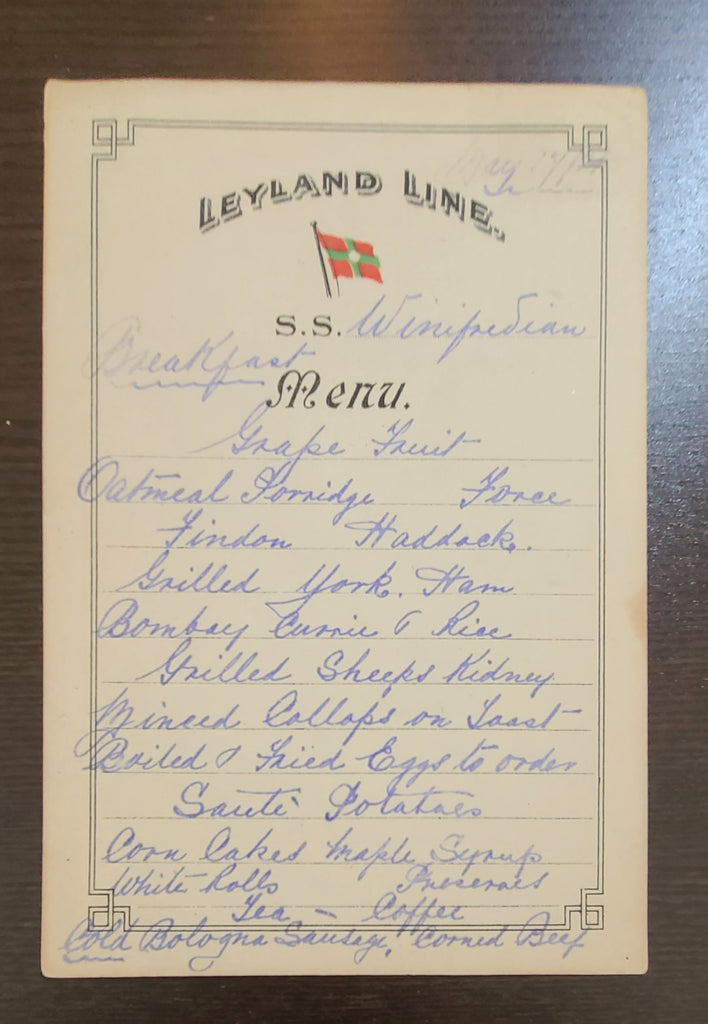 May
LEYLAND LINE.
S.S. Winifredian
Breakfast
Menu.
Grape Fruit
Oatmeal Porridge Force
Findon Haddock.
Grilled York. Ham
Bombay Currie & Rice
Grilled Sheeps Kidney
Minced Collops on Toast
Boiled & Fried Eggs to order
Sauté Potatoes
Corn Cakes Maple Syrup
White Rolls Preserves
Tea - Coffee
Cold Bologna Sausage, Corned Beef